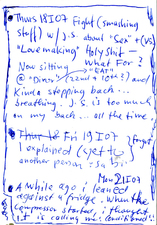 Thurs 18 I 07 Fight (smashing
stuff) w/ J.S. about "Sex" + (vs)
"Lovemaking" Holy Shit —
Now sitting What For?
@ "Diner's" (22nd & 10th?) and
Kinda stepping back..
breathing. J.S. is too much
on my back.. all the time,
Thur 18 Fri 19 I 07
I explained (yet to
another person
Mon 21 I 07
A while ago i leaned
against a fridge. When the
compressor started, i thought
it is calling me.